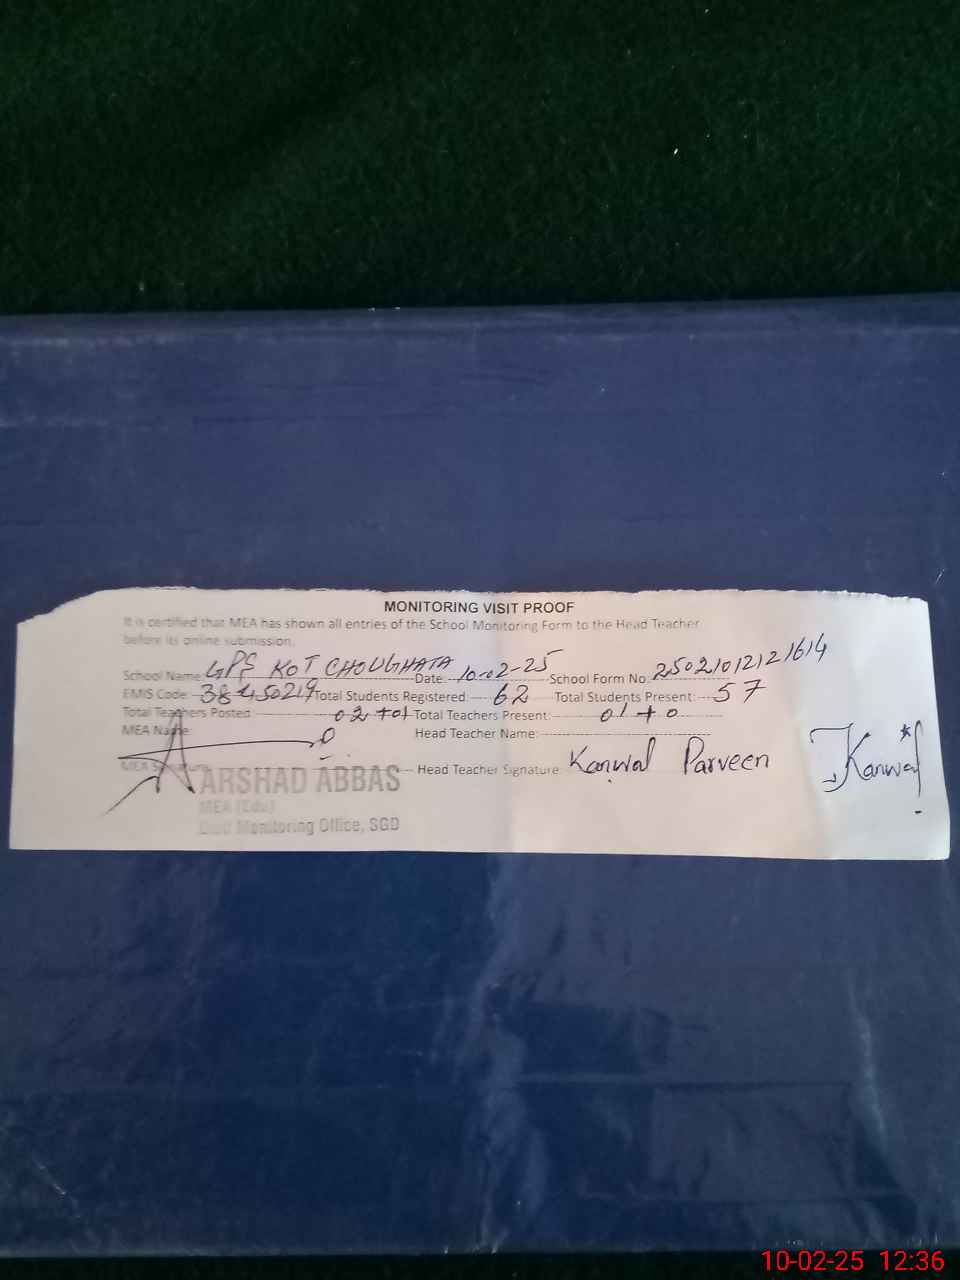 MONITORING VISIT PROOF
It is certified that MEA has shown all entries of the School Monitoring Form to the Head Teacher
before its online submission.
School Name: GPS KOT CHOUGHATA Date: 10-02-25 School Form No: 25021012121614
EMIS Code: Total Students Registered: 62 Total Students Present: 57
Total Teachers Posted: 02+01 Total Teachers Present: 01+0
MEA Name: Head Teacher Name:
MEA Signature: Head Teacher Signature: Kanwal Parveen Kanwal
ARSHAD ABBAS
MEA (Edu)
Distt Monitoring Office, SGD
10-02-25 12:36